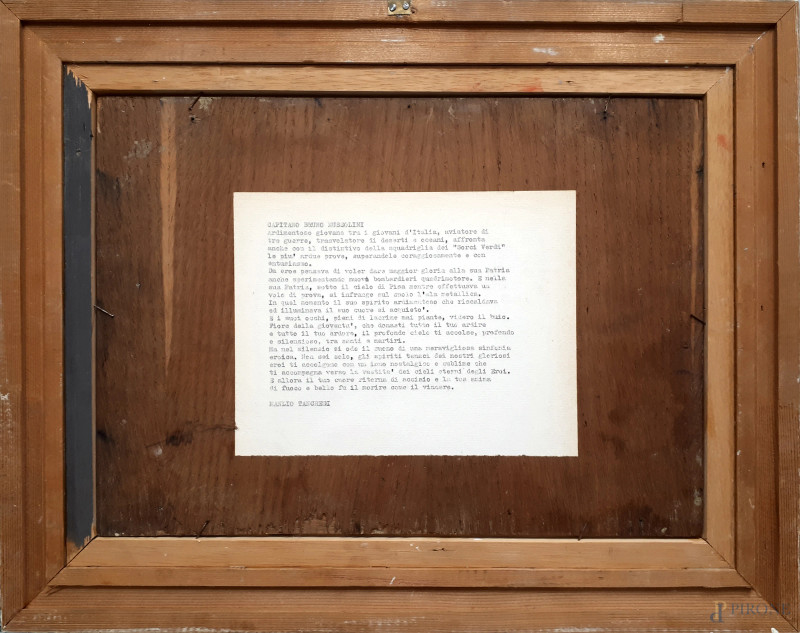 CAPITANO BRUNO MUSSOLINI
Ardimentoso giovane tra i giovani d'Italia, aviatore di
tre guerre, trasvolatore di deserti e oceani, affronta
anche con il distintivo della squadriglia dei "Sorci Verdi"
le piu' ardue prove, superandole coraggiosamente e con
entusiasmo.
Da eroe pensava di voler dare maggior gloria alla sua Patria
anche sperimentando nuovi bombardieri quadrimotore. E nella
sua Patria, sotto il cielo di Pisa mentre effettuava un
volo di prova, si infranse sul suolo l'ala metallica.
In quel momento il suo spirito ardimentoso che riscaldava
ed illuminava il suo cuore si acquieto'.
E i suoi occhi, pieni di lacrime mai piante, videro il buio.
Fiore della gioventu', che donasti tutto il tuo ardire
e tutto il tuo ardore, il profondo cielo ti accolse, profondo
e silenzioso, tra santi e martiri.
Ma nel silenzio si ode il suono di una meravigliosa sinfonia
eroica. Non sei solo, gli spiriti tenaci dei nostri gloriosi
eroi ti accolgono con un inno nostalgico e sublime che
ti accompagna verso la vastita' dei cieli eterni degli Eroi.
E allora il tuo cuore ritorna di acciaio e la tua anima
di fuoco e bello fu il morire come il vincere.
MANLIO